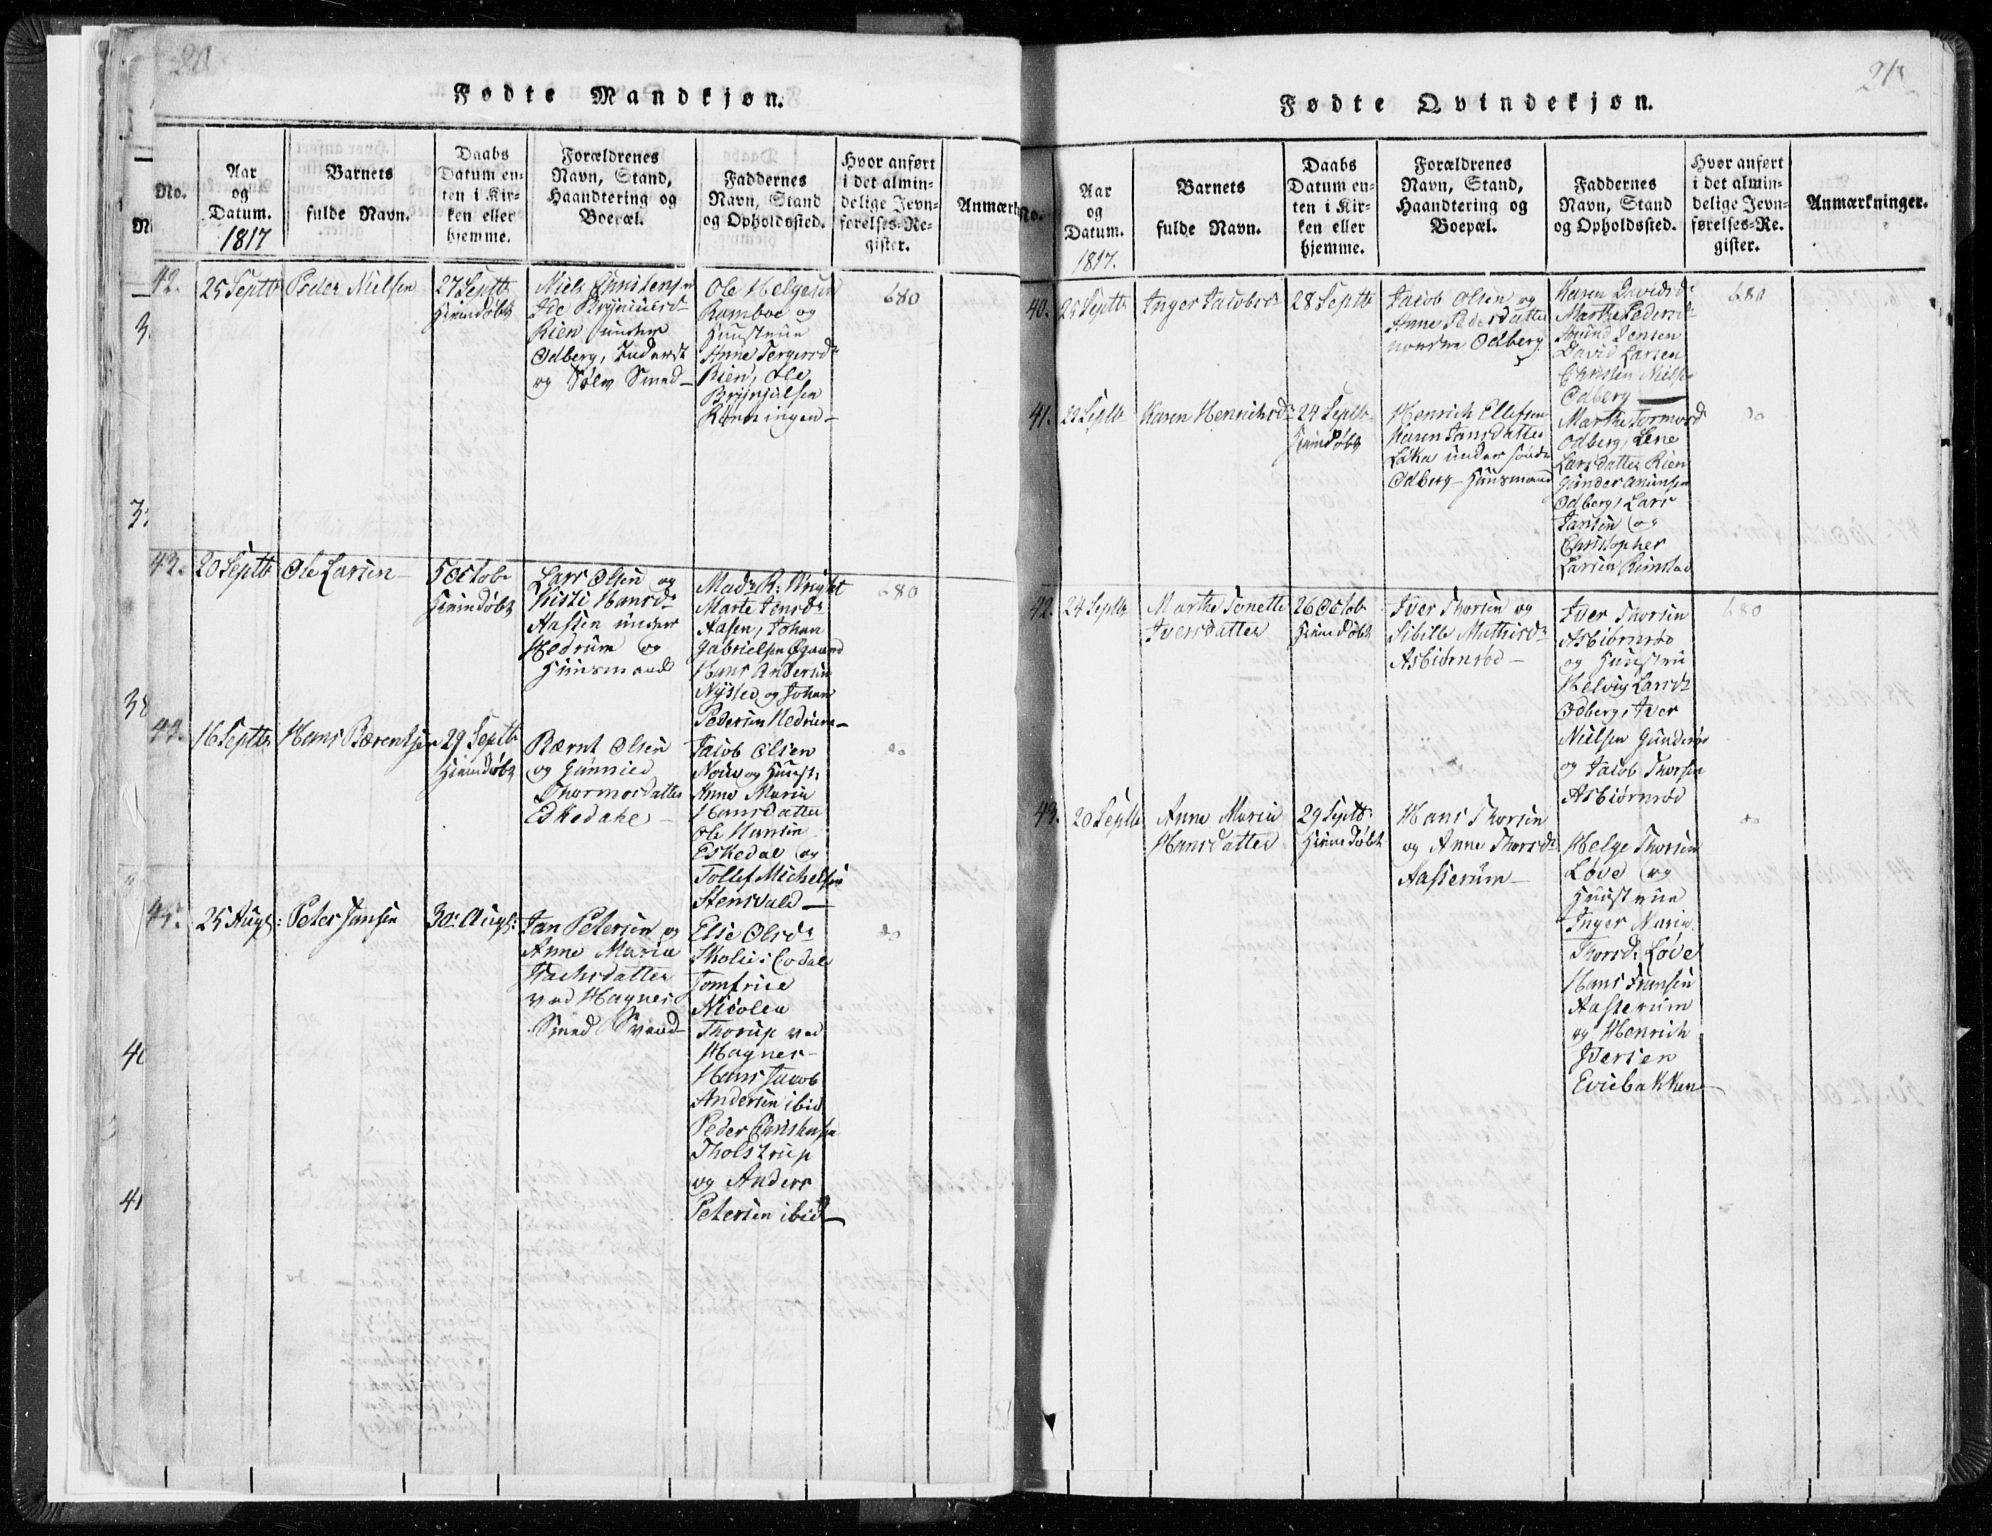 20
Fødte Mandkjøn.
No.
Aar
og
Datum.
1817
Barnets
fulde Navn.
Daabs
Datum en-
ten i Kir-
ken eller
hjemme.
Forældrenes
Navn, Stand,
Haandtering og
Boepæl.
Faddernes
Navn, Stand
og Opholdssted.
Hvor anført
i det almin-
delige Jevn-
førelses-Re-
gister.
Anmærk
42.
25 Septb
Peder Nielsen
27 Septb
Hiemdøbt
Niels Christensen
Rien under
Odberg, Inderst
og Sølv Smed
Ole Helgesen
Ramboe og
Huustrue
Anne Torgersdr
Rien, Ole
Brynjulsen
Rønningen
680
43.
20 Septb
Ole Larsen
5 Octobr
Hiemdøbt
Lars Olsen og
Kisti Hansdr
Aassen under
Hedrum og
Huusmand
Madr R: Wright
Marte Jensdr
Aasen, Johan
Gabrielsen
Hans Andersen
Nysted og Johan
Pedersen Hedrum
680
44.
16 Septbr
Hans Bærentsen
29 Septb
Hiemdøbt
Bærnt Olsen
og Gunnild
Thormosdatter
Eskedahl
Jacob Olsen
og Huust:
Anne Maria
Hansdatter
Ole Hansen
Eskedal og
Tollef Michelsen
Stensvald
do
45.
25 Augs:
Peter Jansen
30 Augs:
Jan Petersen og
Anne Maria
Isachsdatter
ved Hagnes
Smed Svend
Else Olsdr
Jomfrue
Nicolea
Thorup ved
Hagnes
Hans Jacob
Andersen ibid
Peder Christensen
Tholstrup
og Anders
Petersen ibid
do
21
Fødte Qvindekjøn.
No.
Aar
og
Datum.
1817.
Barnets
fulde Navn.
Daabs
Datum en-
ten i Kir-
ken eller
hjemme.
Forældrenes
Navn, Stand,
Haandtering og
Boepæl.
Faddernes
Navn, Stand
og Opholdssted.
Hvor anført
i det almin-
delige Jevn-
førelses-Re-
gister.
Anmærkninger.
40.
25 Septb
Inger Jacobsdr
28 Septb
Jacob Olsen og
Anne Pedersdatter
nordre Odberg
Karen Davidsdr
Marthe Pedersdr
Amund Jensen
David Larsen
Christen Nielsen
Odberg
680
41.
22 Septb
Karen Henrichsdr
24 Septb
Hiemdøbt
Henrich Ellefsen
Karen Jansdatter
Løka under søndr
Odberg Huusmand
Marthe Tormosdr
Odberg, Lene
Larsdatter Rien
Gunder Amunsen
Odberg, Lars
Jansen og
Christopher
Larsen Rimstad
do
42
24 Septb
Marthe Tonette
Iversdatter
26 Octob
Hiemdøbt
Iver Thorsen og
Sibille Mathisdr
Asbiørnrød
Iver Thorsen
Asbiørnrød
og Huustru
Helvig Larsdr
Odberg, Iver
Nielsen Gunderød
og Jacob Thorsen
Asbiørnrød
680
43.
20 Septb
Anne Maria
Hansdatter
29 Septb:
Hiemdøbt
Hans Thorsen
og Anne Thorsdr
Aasserum
Helge Thorsen
Løve og
Huustrue
Inger Maria
Thorsdr Løve
Hans Fransen
Aasserum
og Henrich
Iversen
Eviebakken
do